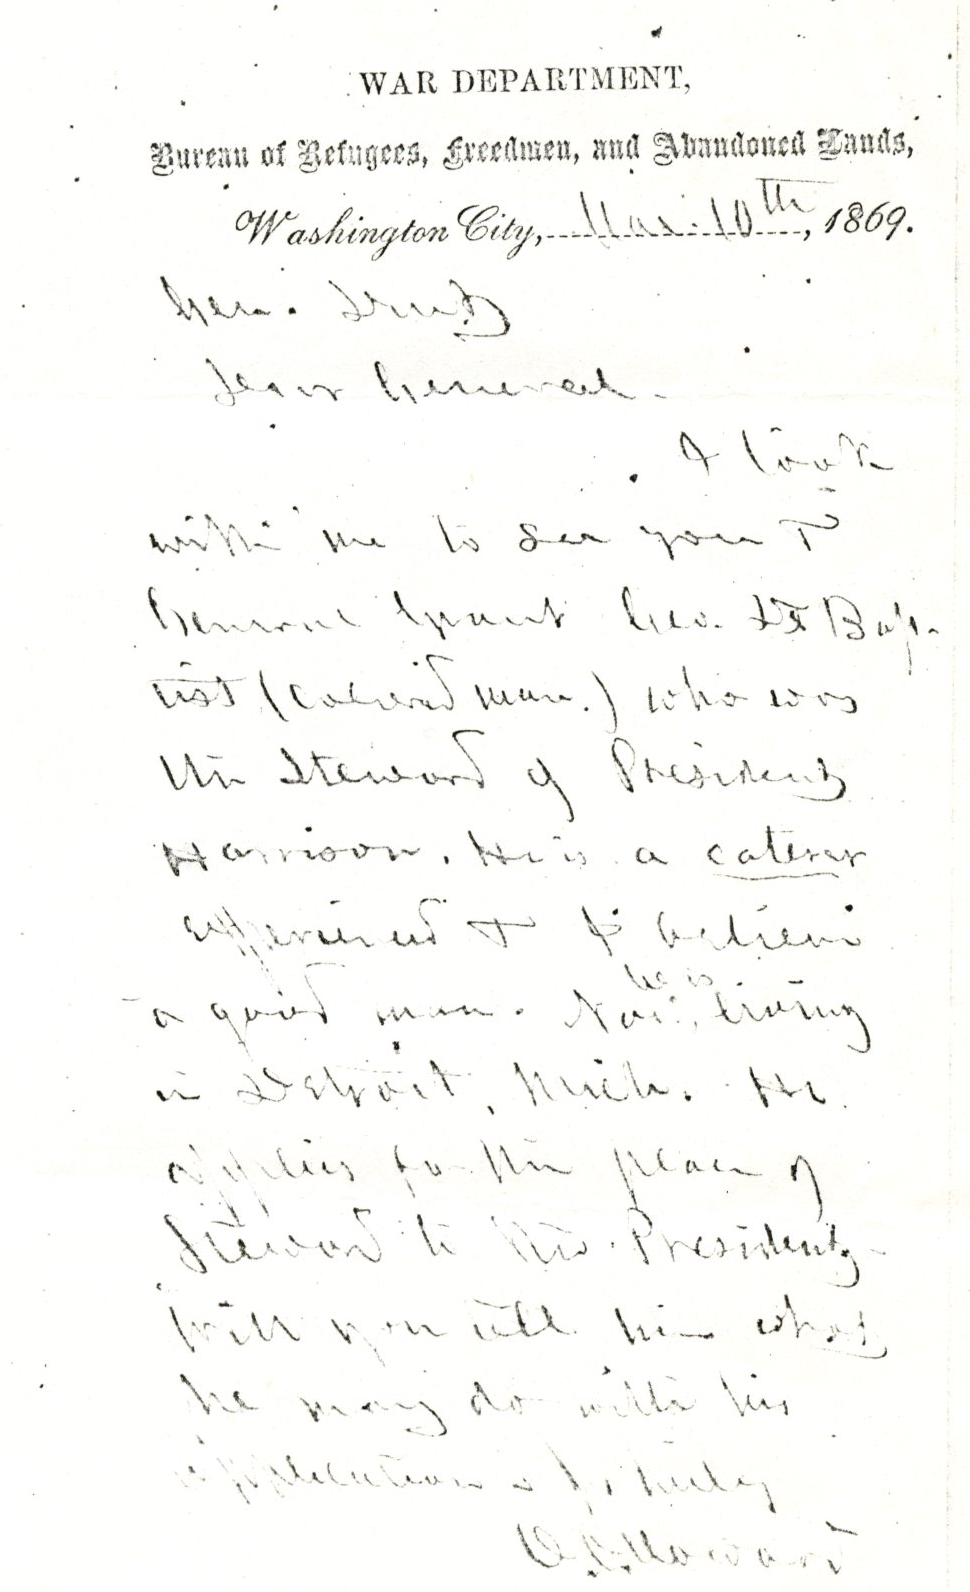 WAR DEPARTMENT,
Bureau of Refugees, Freedmen, and Abandoned Lands,
Washington City, Mar. 10th, 1869.
Gen. Dent
Dear General.
I took
with me to see you &
General Grant Geo. De Bap-
tist (colored man.) who was
the Steward of President
Harrison. He is a caterer
experienced & I believe
a good man. Now he is living
in Detroit, Mich. He
applies for the place of
Steward to the President
Will you tell him what
he may do with his
application - truly
O. O. Howard